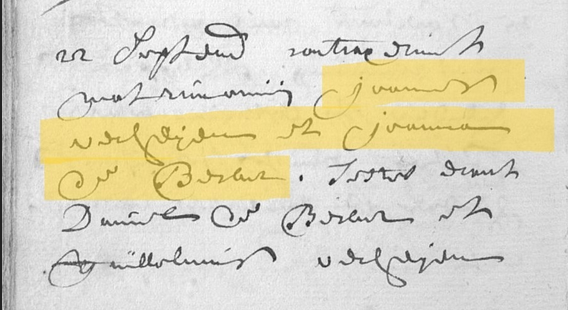 22 Septemb contraxerunt
matrimonium Joannes
verheijen et Joanna
de Becker. Testes erant
Daniel de Becker et
Guillelmus verheijen